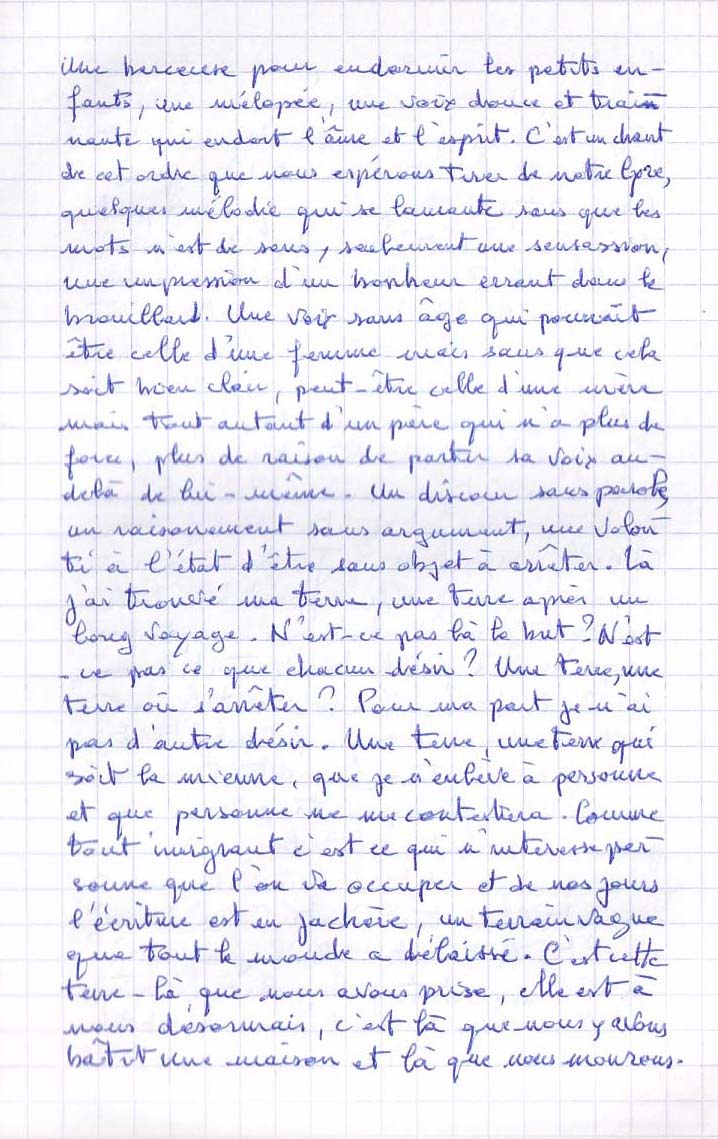 Une berceuse pour endormir les petits en-
fants, une mélopée, une voix douce et train
nante qui endort l'âme et l'esprit. C'est un chant
de cet ordre que nous espérons tirer de notre lyre,
quelques mélodie qui se lamente sans que les
mots n'est de sens, seulement une sensassion,
une impression d'un bonheur errant dans le
brouillard. Une voix sans âge qui pourrait
être celle d'une femme mais sans que cela
soit bien clair, peut-être celle d'une mère
mais tout autant d'un père qui n'a plus de
force, plus de raison de porter sa voix au-
delà de lui-même. Un discour sans parole,
un raisonement sans argument, une volon
té à l'état d'être sans objet à arrêter. Là
j'ai trouvé ma terre, une terre après un
long voyage. N'est-ce pas là le but? N'est
-ce pas ce que chacun désir? Une terre, une
terre où s'arrêter? Pour ma part je n'ai
pas d'autre désir. Une terre, une terre qui
soit la mienne, que je n'enlève à personne
et que personne ne me contestera. Comme
tout imigrant c'est ce qui n'interesse per
sonne que l'on va occuper et de nos jours
l'écriture est en jachère, un terrain vague
que tout le monde a délaissé. C'est cette
terre-là que nous avons prise, elle est à
nous désormais, c'est là que nous y allons
bâtir une maison et là que nous mourons.